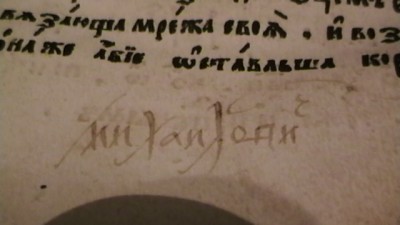 вѧза́юща мре́жа своѧ̀ . и҆ воз
ѻна́же а҆́бїе ѡ҆ста́вльша ко
михаи